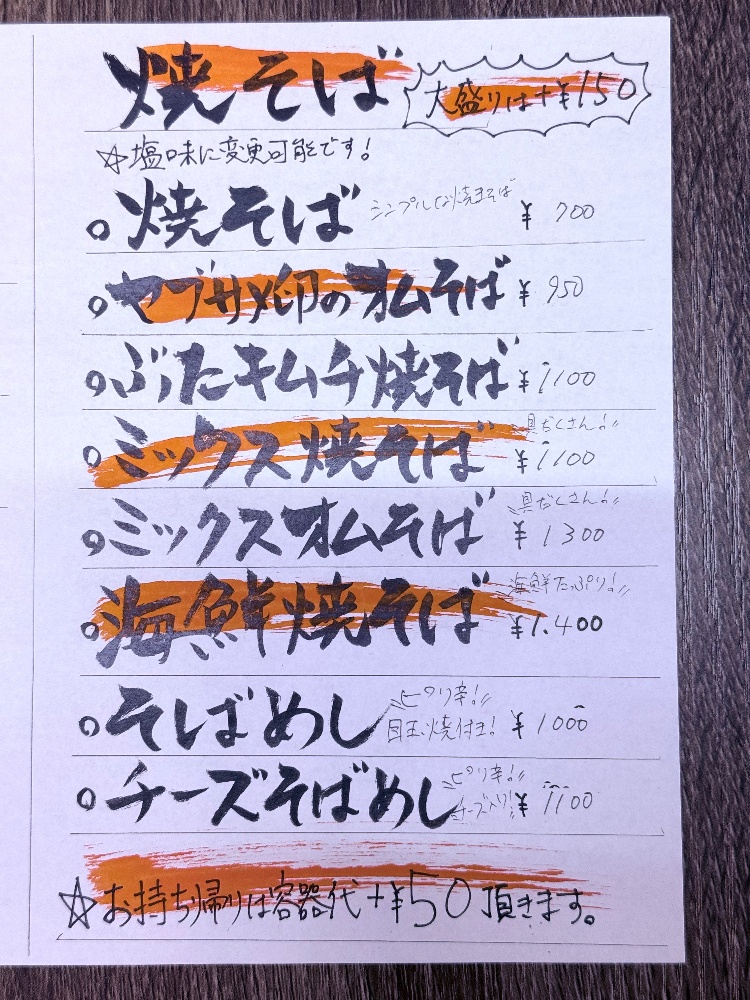 焼そば
大盛りは+¥150
☆塩味に変更可能です!
○焼そば シンプルな焼きそば ¥ 700
○ヤブサメ印のオムそば ¥ 950
○ぶたキムチ焼そば ¥1100
○ミックス焼そば 具だくさん! ¥1100
○ミックスオムそば 具だくさん! ¥1300
○海鮮焼そば 海鮮たっぷり! ¥1.400
○そばめし ピリ辛! 目玉焼付き! ¥1000
○チーズそばめし ピリ辛! チーズ入り! ¥1100
☆お持ち帰りは容器代+¥50頂きます。